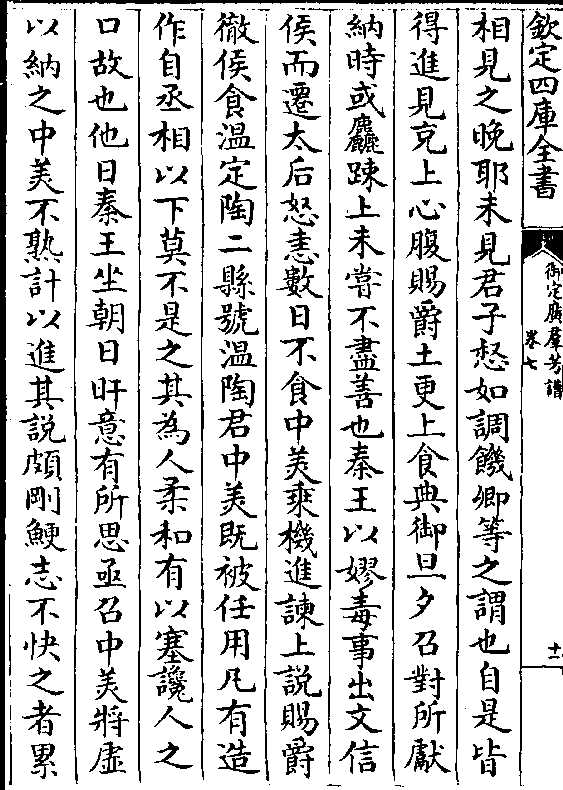 欽定四庫全書
御定廣羣芳譜
卷七
十一
相見之晚耶未見君子惄如調饑卿等之謂也自是皆
得進見克上心腹賜爵土更上食典御旦夕召對所獻
納時或麤踈上未嘗不盡善也秦王以嫪毐事出文信
侯而遷太后怒恚數日不食中美乗機進諫上説賜爵
徹侯食溫定陶二縣號溫陶君中美既被任用凡有造
作自丞相以下莫不是之其為人柔和有以塞讒人之
口故也他日秦王坐朝日旰意有所思亟召中美將虛
以納之中美不熟計以進其説頗剛鯁志不快之者累